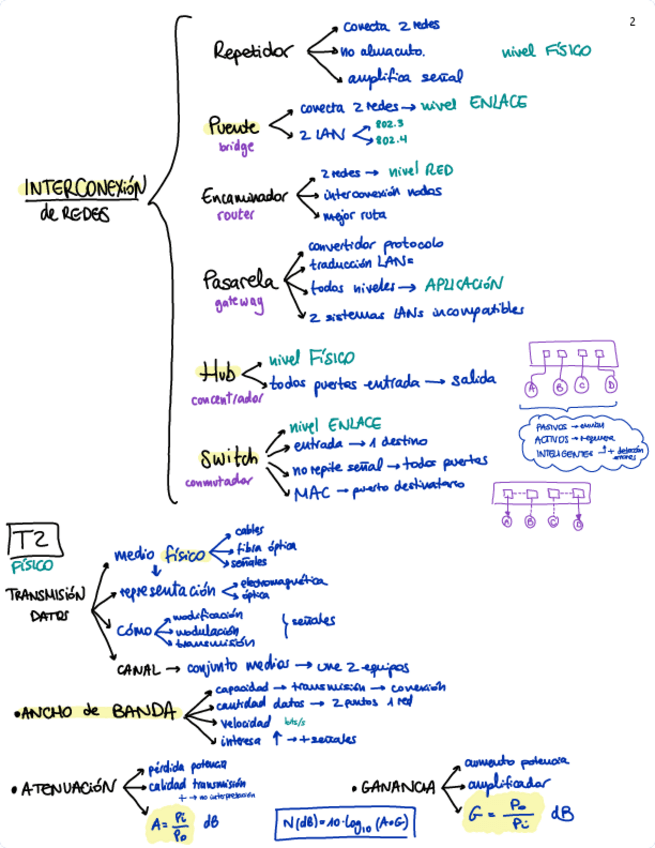 2
INTERCONEXIÓN
de REDES
Repetidor
conecta 2 redes
no almacuto.
amplifica señal
nivel FÍSICO
Puente
bridge
conecta 2 redes → nivel ENLACE
2 LAN
802.3
802.4
Encaminador
router
2 redes → nivel RED
interconexión nodos
mejor ruta
Pasarela
gateway
convertidor protocolo
traducción LANs
todos niveles → APLICACIÓN
2 sistemas LANs incompatibles
Hub
concentrador
nivel FÍSICO
todos puertas entrada → salida
A B C D
PASIVOS →
ACTIVOS → regenera
INTELIGENTES → + detección
errores
Switch
conmutador
nivel ENLACE
entrada → 1 destino
no repite señal → todos puertos
MAC → puerto destinatario
A B C D
T2
FÍSICO
TRANSMISIÓN
DATOS
medio físico
cables
fibra óptica
señales
representación
electromagnética
óptica
CÓMO
modificación
modulación
transmisión
señales
CANAL → conjunto medios → une 2 equipos
• ANCHO de BANDA
capacidad → transmisión → conexión
cantidad datos → 2 puntos 1 red
velocidad bits/s
interesa ↑ → + señales
• ATENUACIÓN
pérdida potencia
calidad transmisión
+ → no interpretación
A = Pi/Po dB
N(dB) = 10·log10 (A o G)
• GANANCIA
aumento potencia
amplificador
G = Po/Pi dB